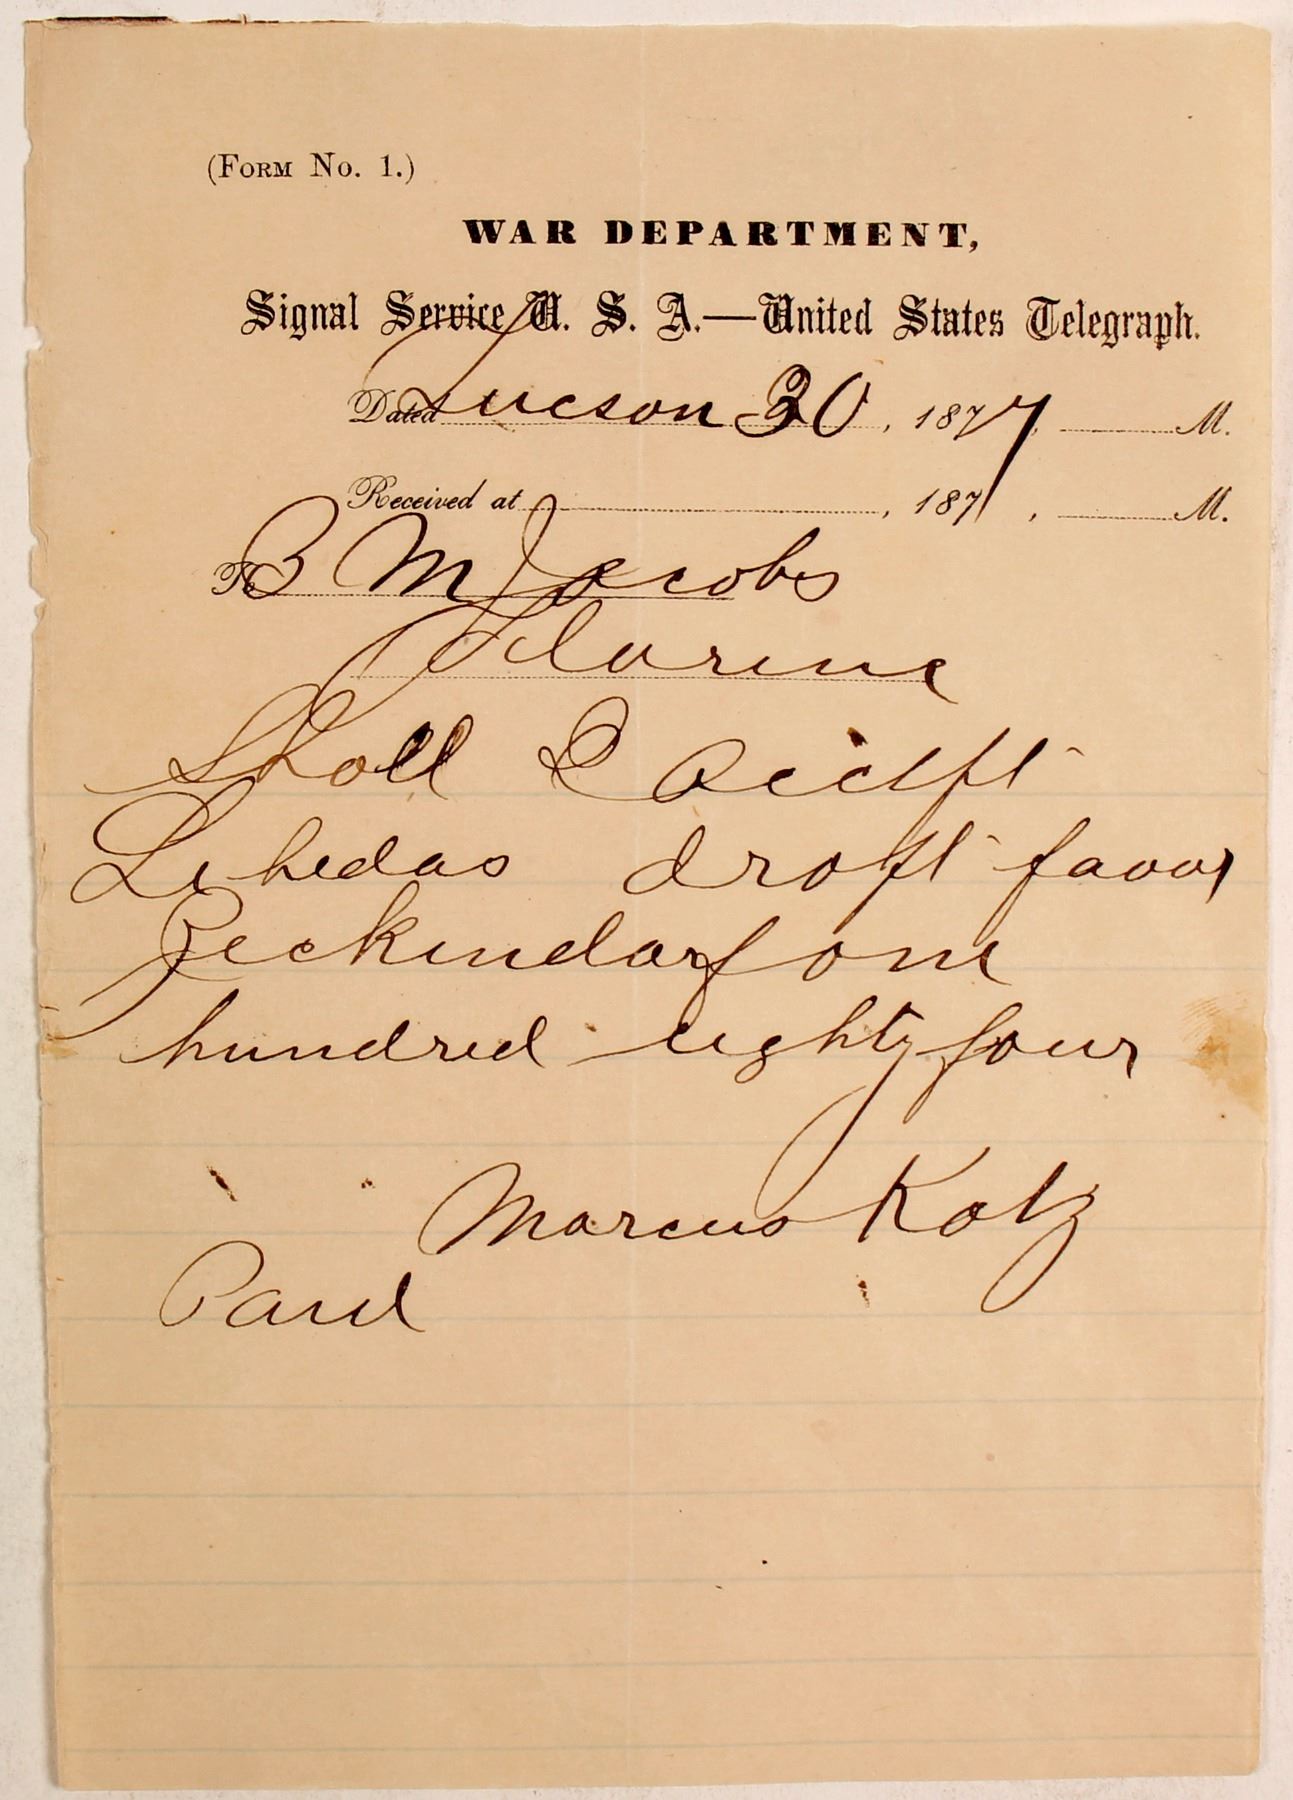 (FORM No. 1.)
WAR DEPARTMENT,
Signal Service U. S. A.—United States Telegraph.
Dated Tucson 30, 1877, M.
Received at , 187 , M.
To B M Jacobs
Florence
Shall I accept
draft favor
Zeckendorf one
hundred eighty four
Marcus Katz
Paid